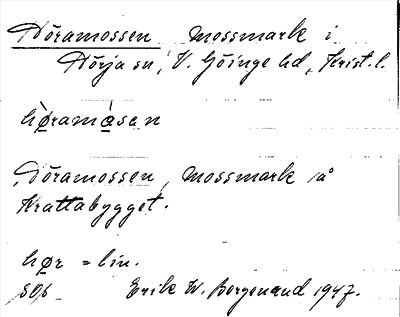 Höramossen mossmark i
Hörja sn, V. Göinge hd, Krist. l.
hø̀ramɑ̀san
Höramossen, mossmark på
Krattabygget.
hør = lin.
Erik W. Borgenand 1947.